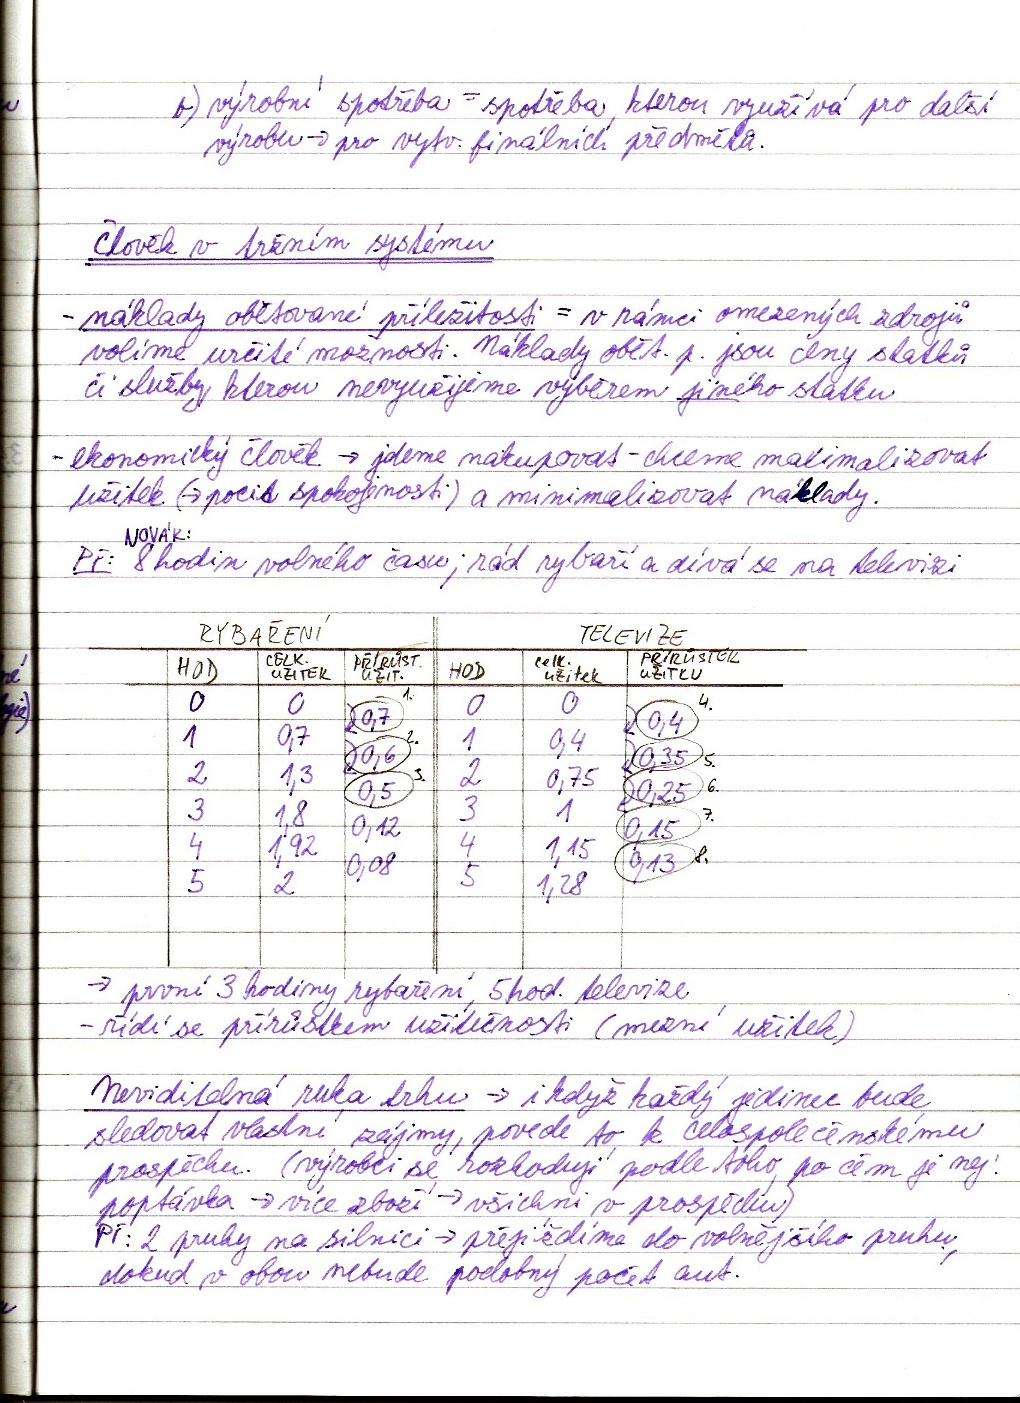 b) výrobní spotřeba = spotřeba, kterou využívá pro další
výrobu → pro vytv. finálních předmětů.
Člověk v tržním systému
- náklady obětované příležitosti = v rámci omezených zdrojů
volíme určité možnosti. Náklady obět. p. jsou ceny statků
či služby, kterou nevyužijeme výběrem jiného statku
- ekonomický člověk → jdeme nakupovat - chceme maximalizovat
užitek (→ pocit spokojenosti) a minimalizovat náklady.
NOVÁK:
Př: 8 hodin volného času; rád rybaří a dívá se na televizi
RYBAŘENÍ TELEVIZE
HOD CELK. UŽITEK PŘÍRŮST. UŽIT. HOD celk. užitek PŘÍRŮSTEK UŽITKU
0 0 0 0
0,7 1. 0,4 4.
1 0,7 1 0,4
0,6 2. 0,35 5.
2 1,3 2 0,75
0,5 3. 0,25 6.
3 1,8 3 1
0,12 0,15 7.
4 1,92 4 1,15
0,08 0,13 8.
5 2 5 1,28
→ první 3 hodiny rybaření, 5 hod. televize
- řídí se přírůstkem užitečnosti (mezní užitek)
Neviditelná ruka trhu → i když každý jedinec bude
sledovat vlastní zájmy, povede to k celospolečenskému
prospěchu. (výrobci se rozhodují podle toho, po čem je nej.
poptávka → více zboží → všichni v prospěchu)
Př: 2 pruhy na silnici → přejíždíme do volnějšího pruhu,
dokud v obou nebude podobný počet aut.